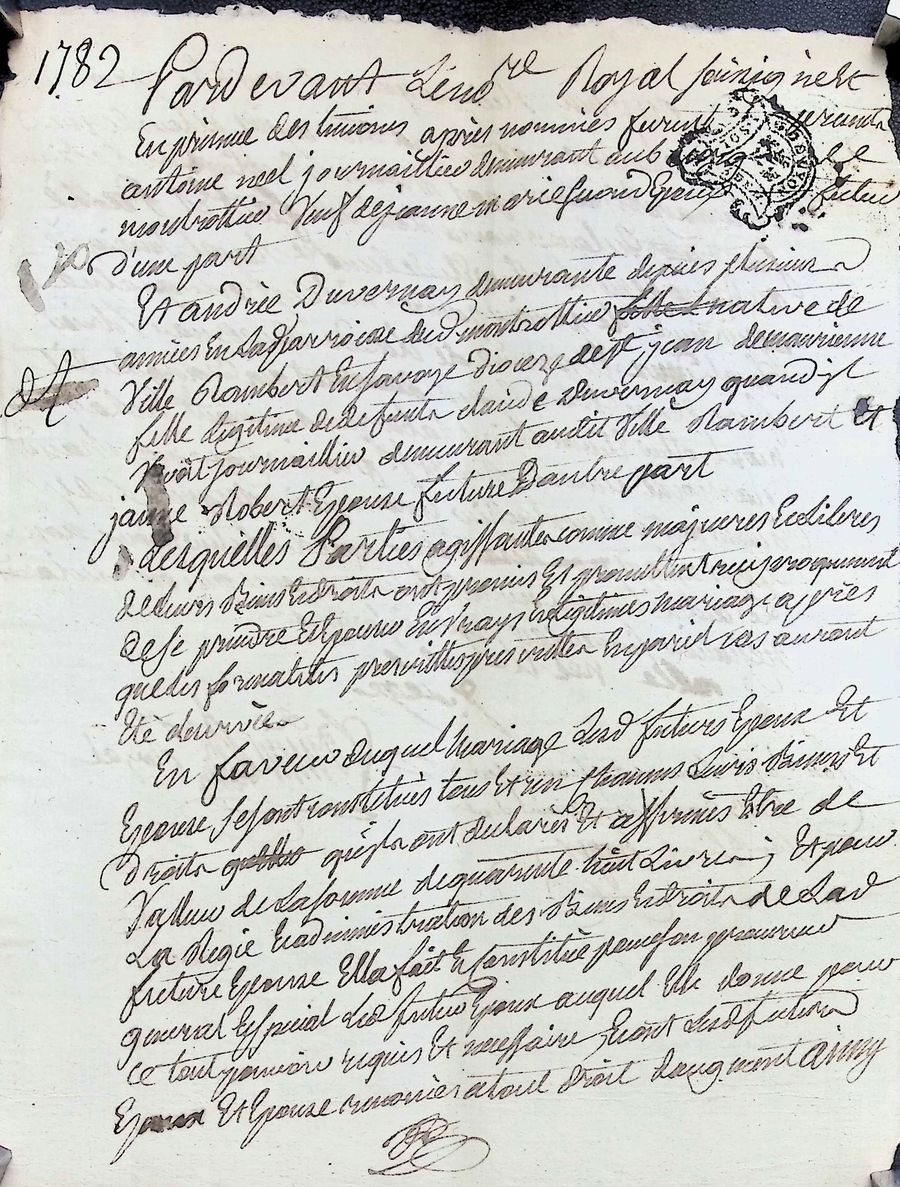 1782 Pardevant Le no.re Royal soussigné et
En présence des témoins après nommés furent présents
antoine neel journaillier demurant au b de
montrottier Veuf de jeanne marie Epoux futur
d'une part
Et andrée Duvernay demurante depuis plusieurs
années En Lad parroisse dud montrottier fille native de
Ville Rambert En Savoye Dioceze de St jean de maurienne
fille Légitime de defunts claude Duvernay quand il
Vivoit journaillier demeurant audit Ville Rambert Et
janne Robert Epouse future D'autre part
Lesquelles Parties agissantes comme majeures Et Libres
de Leurs Biens Et Droits ont promis Et promettent reciproquement
de se prendre Et Epouser En Vray Et Légitime mariage après
que les formalités prescrittes En pareil cas auront
Eté observées
En faveur duquel mariage Lesd futurs Epoux Et
Epouse se sont constitués tous Et un chacuns Leurs Biens Et
Droits qu'ils ont declarés Et affirmés Etre de
Valleur de La somme de quarante huit Livres ; Et pour
La Regie Et administration des Biens Et droits de Lad
future Epouse Elle a fait Et Constitué pour son procureur
general Et special Led futur Epoux auquel Elle donne pour
ce tout pouvoir requis Et necessaire Et ont Lesd futurs
Epoux Et Epouse renoncés a tout droit d'augment ainsy